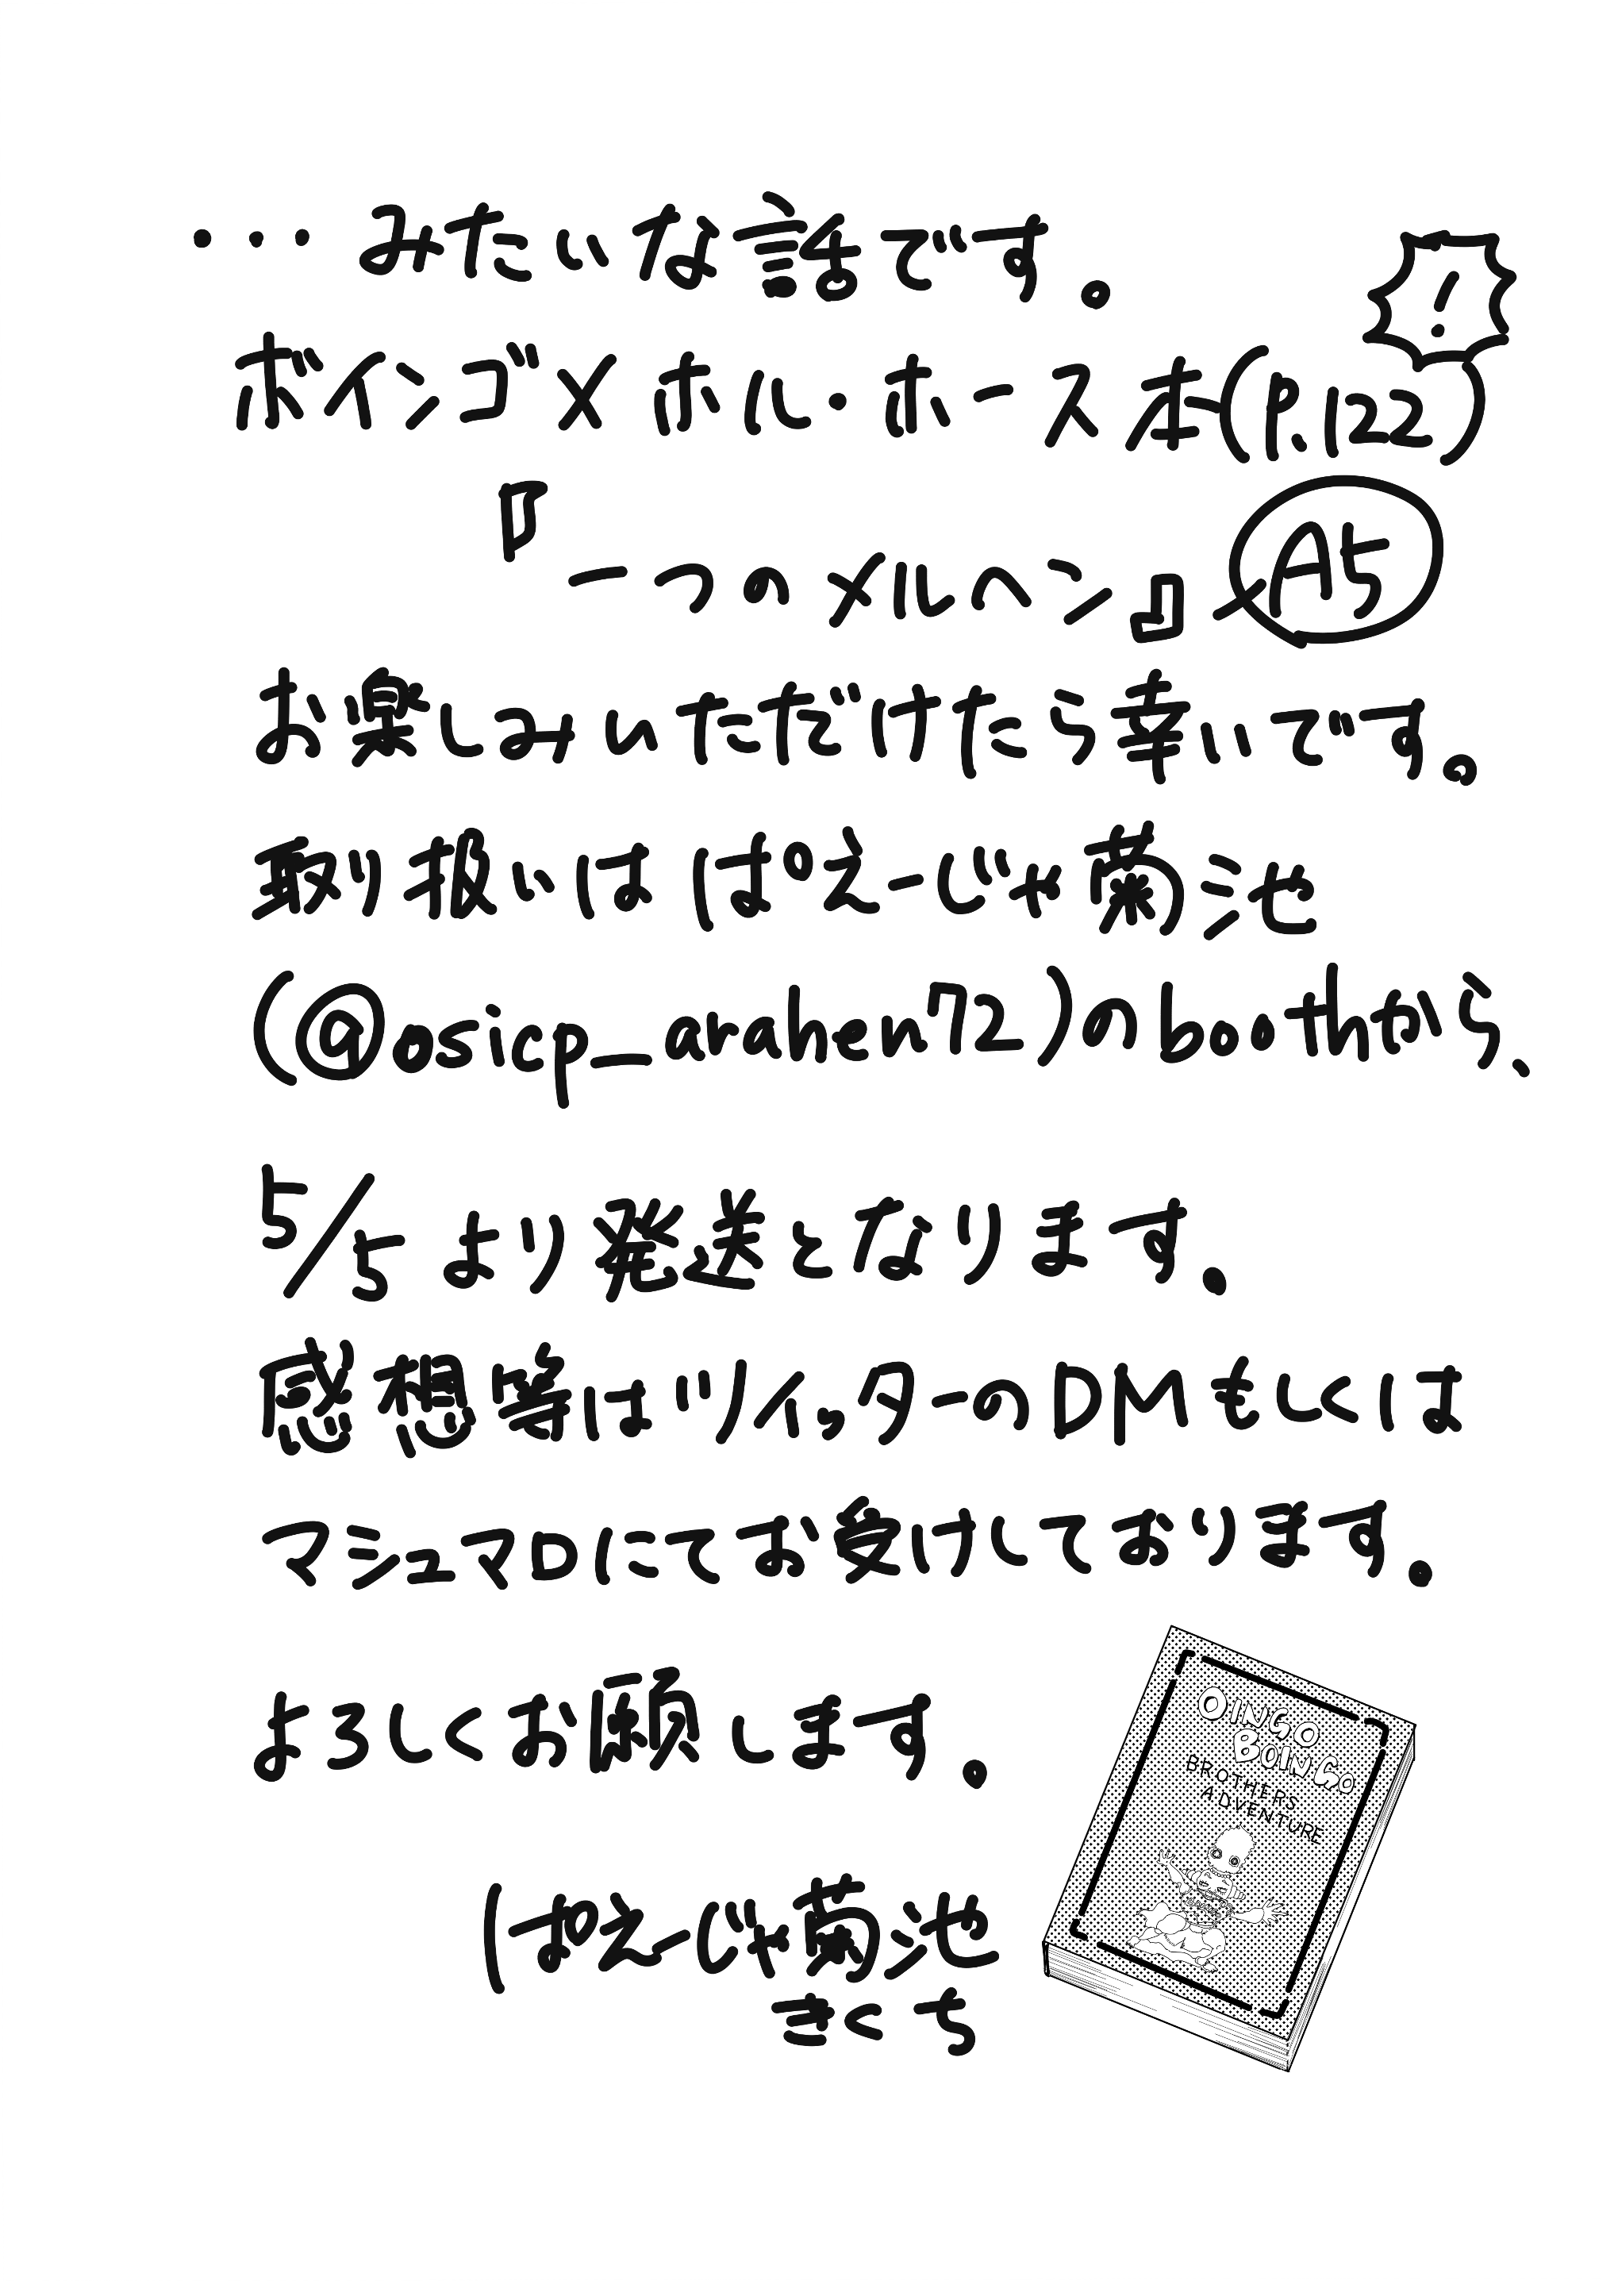 ・・・みたいな話です。
!
ボインゴ×ホル・ホース本(P.122)
『一つのメルヘン』 A5
お楽しみいただけたら幸いです。
取り扱いは ぱえーじゃ菊池
(@osicp_arahen72)のboothから、
5/5 より発送となります。
感想等はツイッターのDMもしくは
マシュマロにてお受けしております。
よろしくお願します。
OINGO
BOINGO
BROTHERS
ADVENTURE
(ぱえーじゃ菊池
きくち